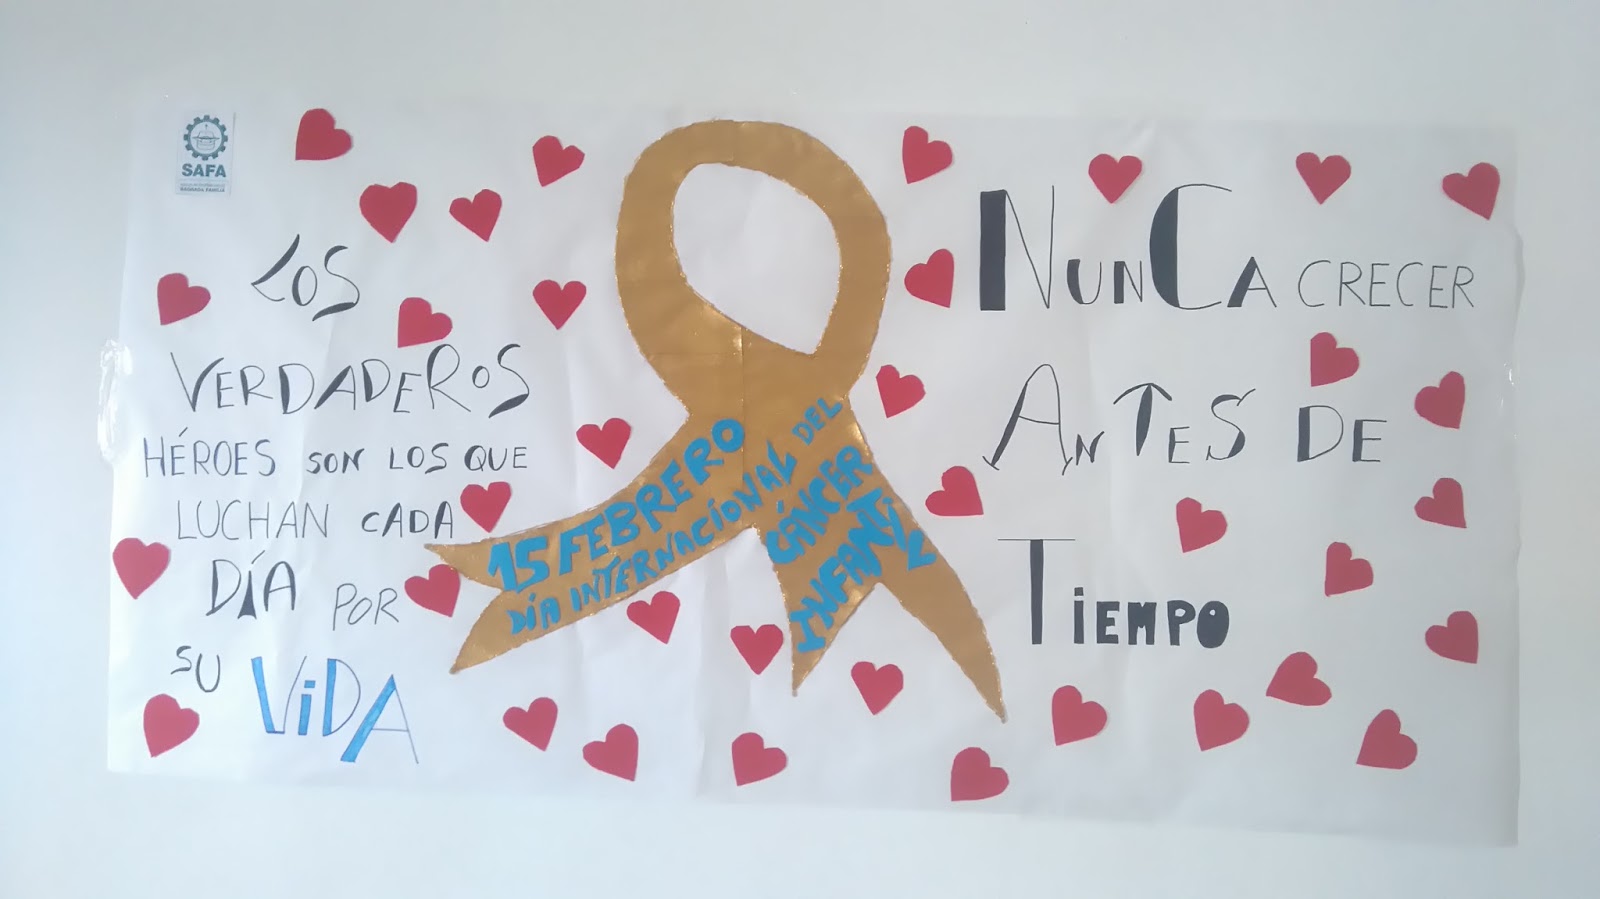 SAFA
SAGRADA FAMILIA
LOS
VERDADEROS
HÉROES SON LOS QUE
LUCHAN CADA
DÍA POR
SU VIDA
15 FEBRERO
DÍA INTERNACIONAL DEL
CÁNCER
INFANTIL
NUNCA CRECER
ANTES DE
TIEMPO